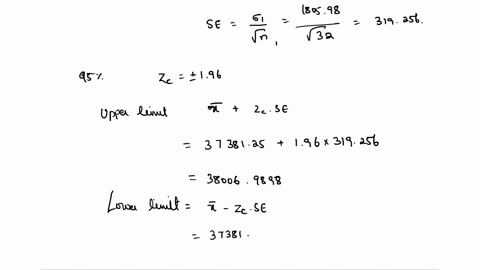 SE = σ₁/√n₁ = 1805.98/√32 = 319.256.
95% Z꜀ = ±1.96
Upper limit x̄ + Z꜀.SE
= 37381.25 + 1.96 × 319.256
= 38006.9898
Lower limit = x̄ - Z꜀.SE
= 37381.